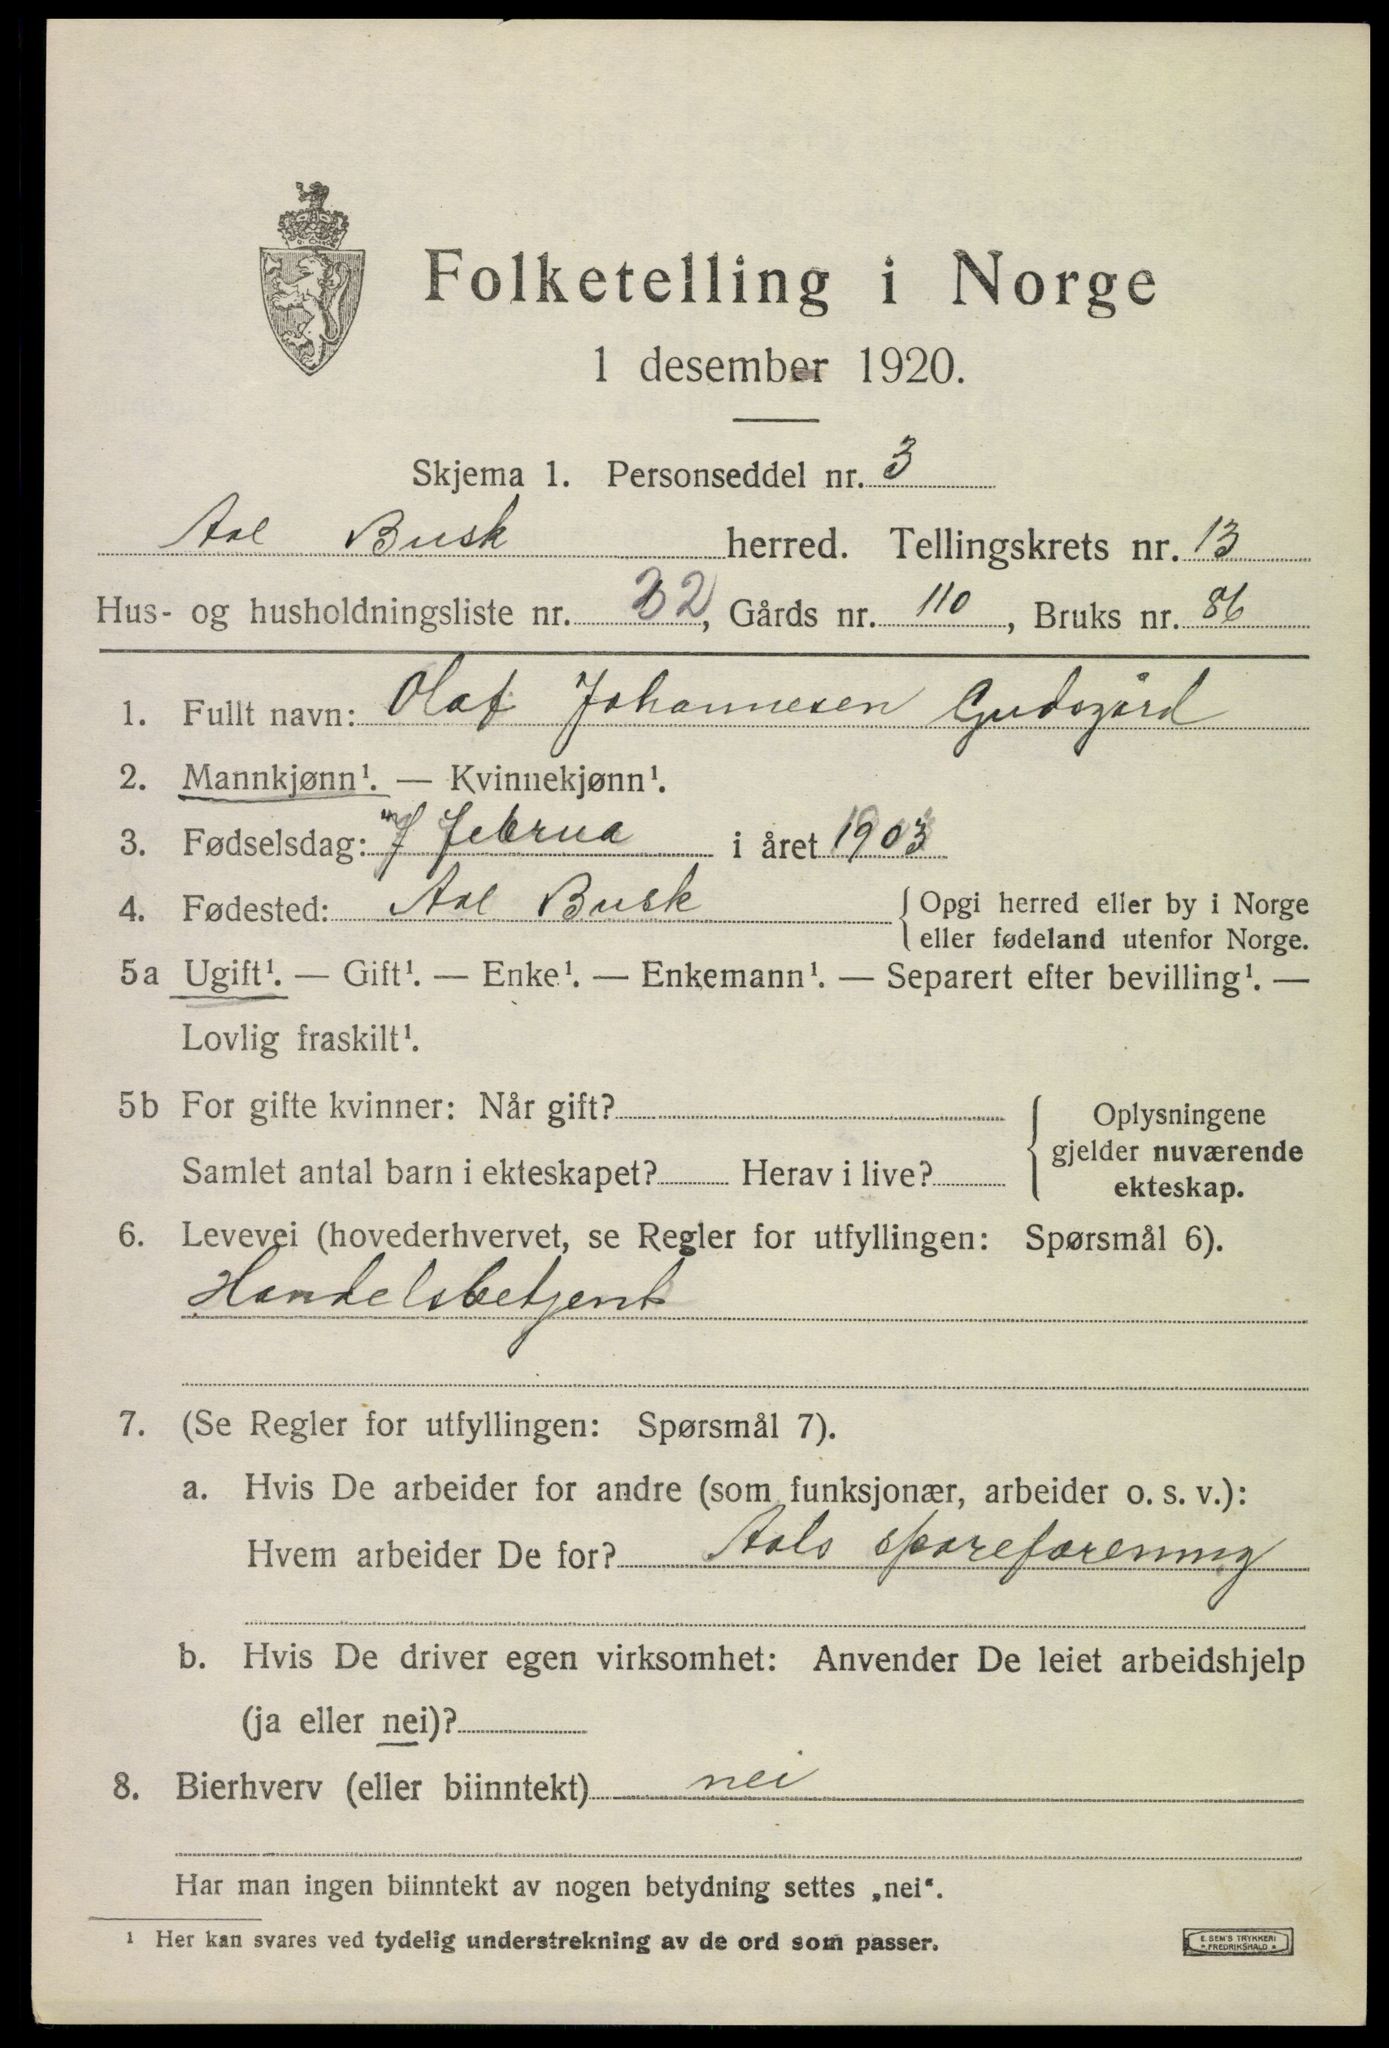 Folketelling i Norge
1 desember 1920.
Skjema 1. Personseddel nr. 3
Aal Busk herred. Tellingskrets nr. 13
Hus- og husholdningsliste nr. 32, Gårds nr. 110, Bruks nr. 86
1. Fullt navn: Olaf Johannesen Gudsgård
2. Mannkjønn¹. — Kvinnekjønn¹.
3. Fødselsdag: 7 februa i året 1903
4. Fødested: Aal Busk { Opgi herred eller by i Norge
eller fødeland utenfor Norge.
5a Ugift¹. — Gift¹. — Enke¹. — Enkemann¹. — Separert efter bevilling¹. —
Lovlig fraskilt¹.
5b For gifte kvinner: Når gift? { Oplysningene
gjelder nuværende
Samlet antal barn i ekteskapet? Herav i live? ekteskap.
6. Levevei (hovederhvervet, se Regler for utfyllingen: Spørsmål 6).
Handelsbetjent
7. (Se Regler for utfyllingen: Spørsmål 7).
a. Hvis De arbeider for andre (som funksjonær, arbeider o. s. v.):
Hvem arbeider De for? Aals spareforening
b. Hvis De driver egen virksomhet: Anvender De leiet arbeidshjelp
(ja eller nei)?
8. Bierhverv (eller biinntekt) nei
Har man ingen biinntekt av nogen betydning settes „nei“.
¹ Her kan svares ved tydelig understrekning av de ord som passer.
E. SEM'S TRYKKERI
* FREDRIKSHALD *